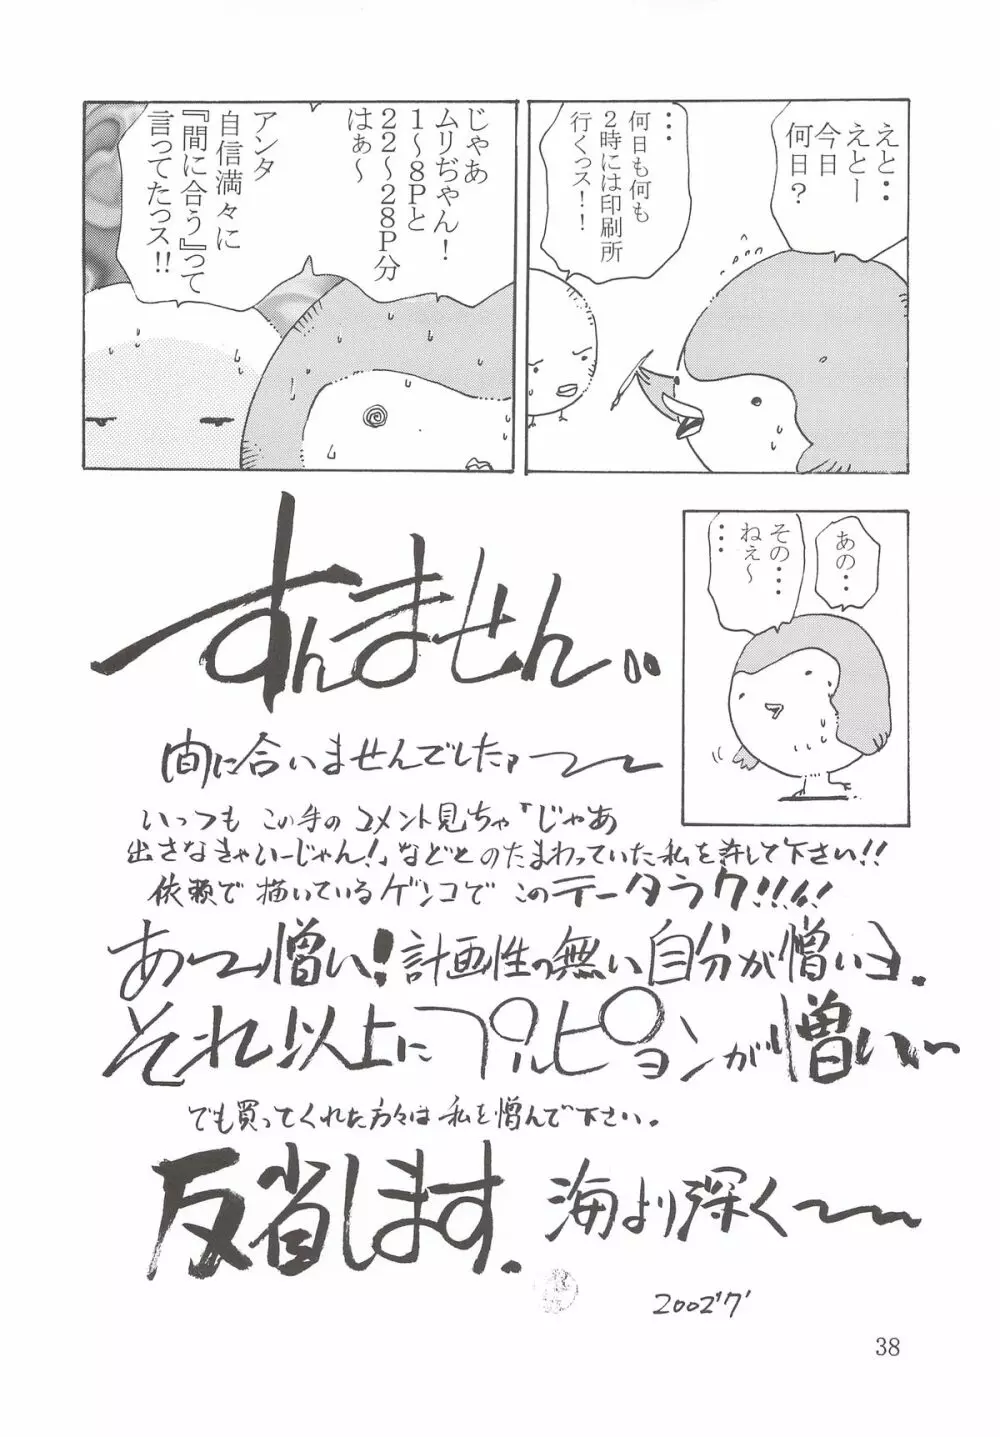 えと・・
えとー
今日
何日?
・・・
何日も何も
2時には印刷所
行くっス!!
じゃあ
ムリぢゃん!
1〜8Pと
22〜28P分
はぁ〜
アンタ
自信満々に
『間に合う』って
言ってたっス!!
あの・・
その・・・
ねぇ〜
・・・
すんません〃
間に合いませんでした〜
いつも この手のコメント見ちゃ「じゃあ
出さなきゃいーじゃん!」などとのたまわっていた私を許して下さい!!
依頼で描いているゲンコで このテータラク!!!!
あ〜憎い!計画性の無い自分が憎いヨ.
それ以上にプルピョンが憎い〜
でも買ってくれた方々は私を憎んで下さい。
反省します. 海より深く〜
2002'7'
38